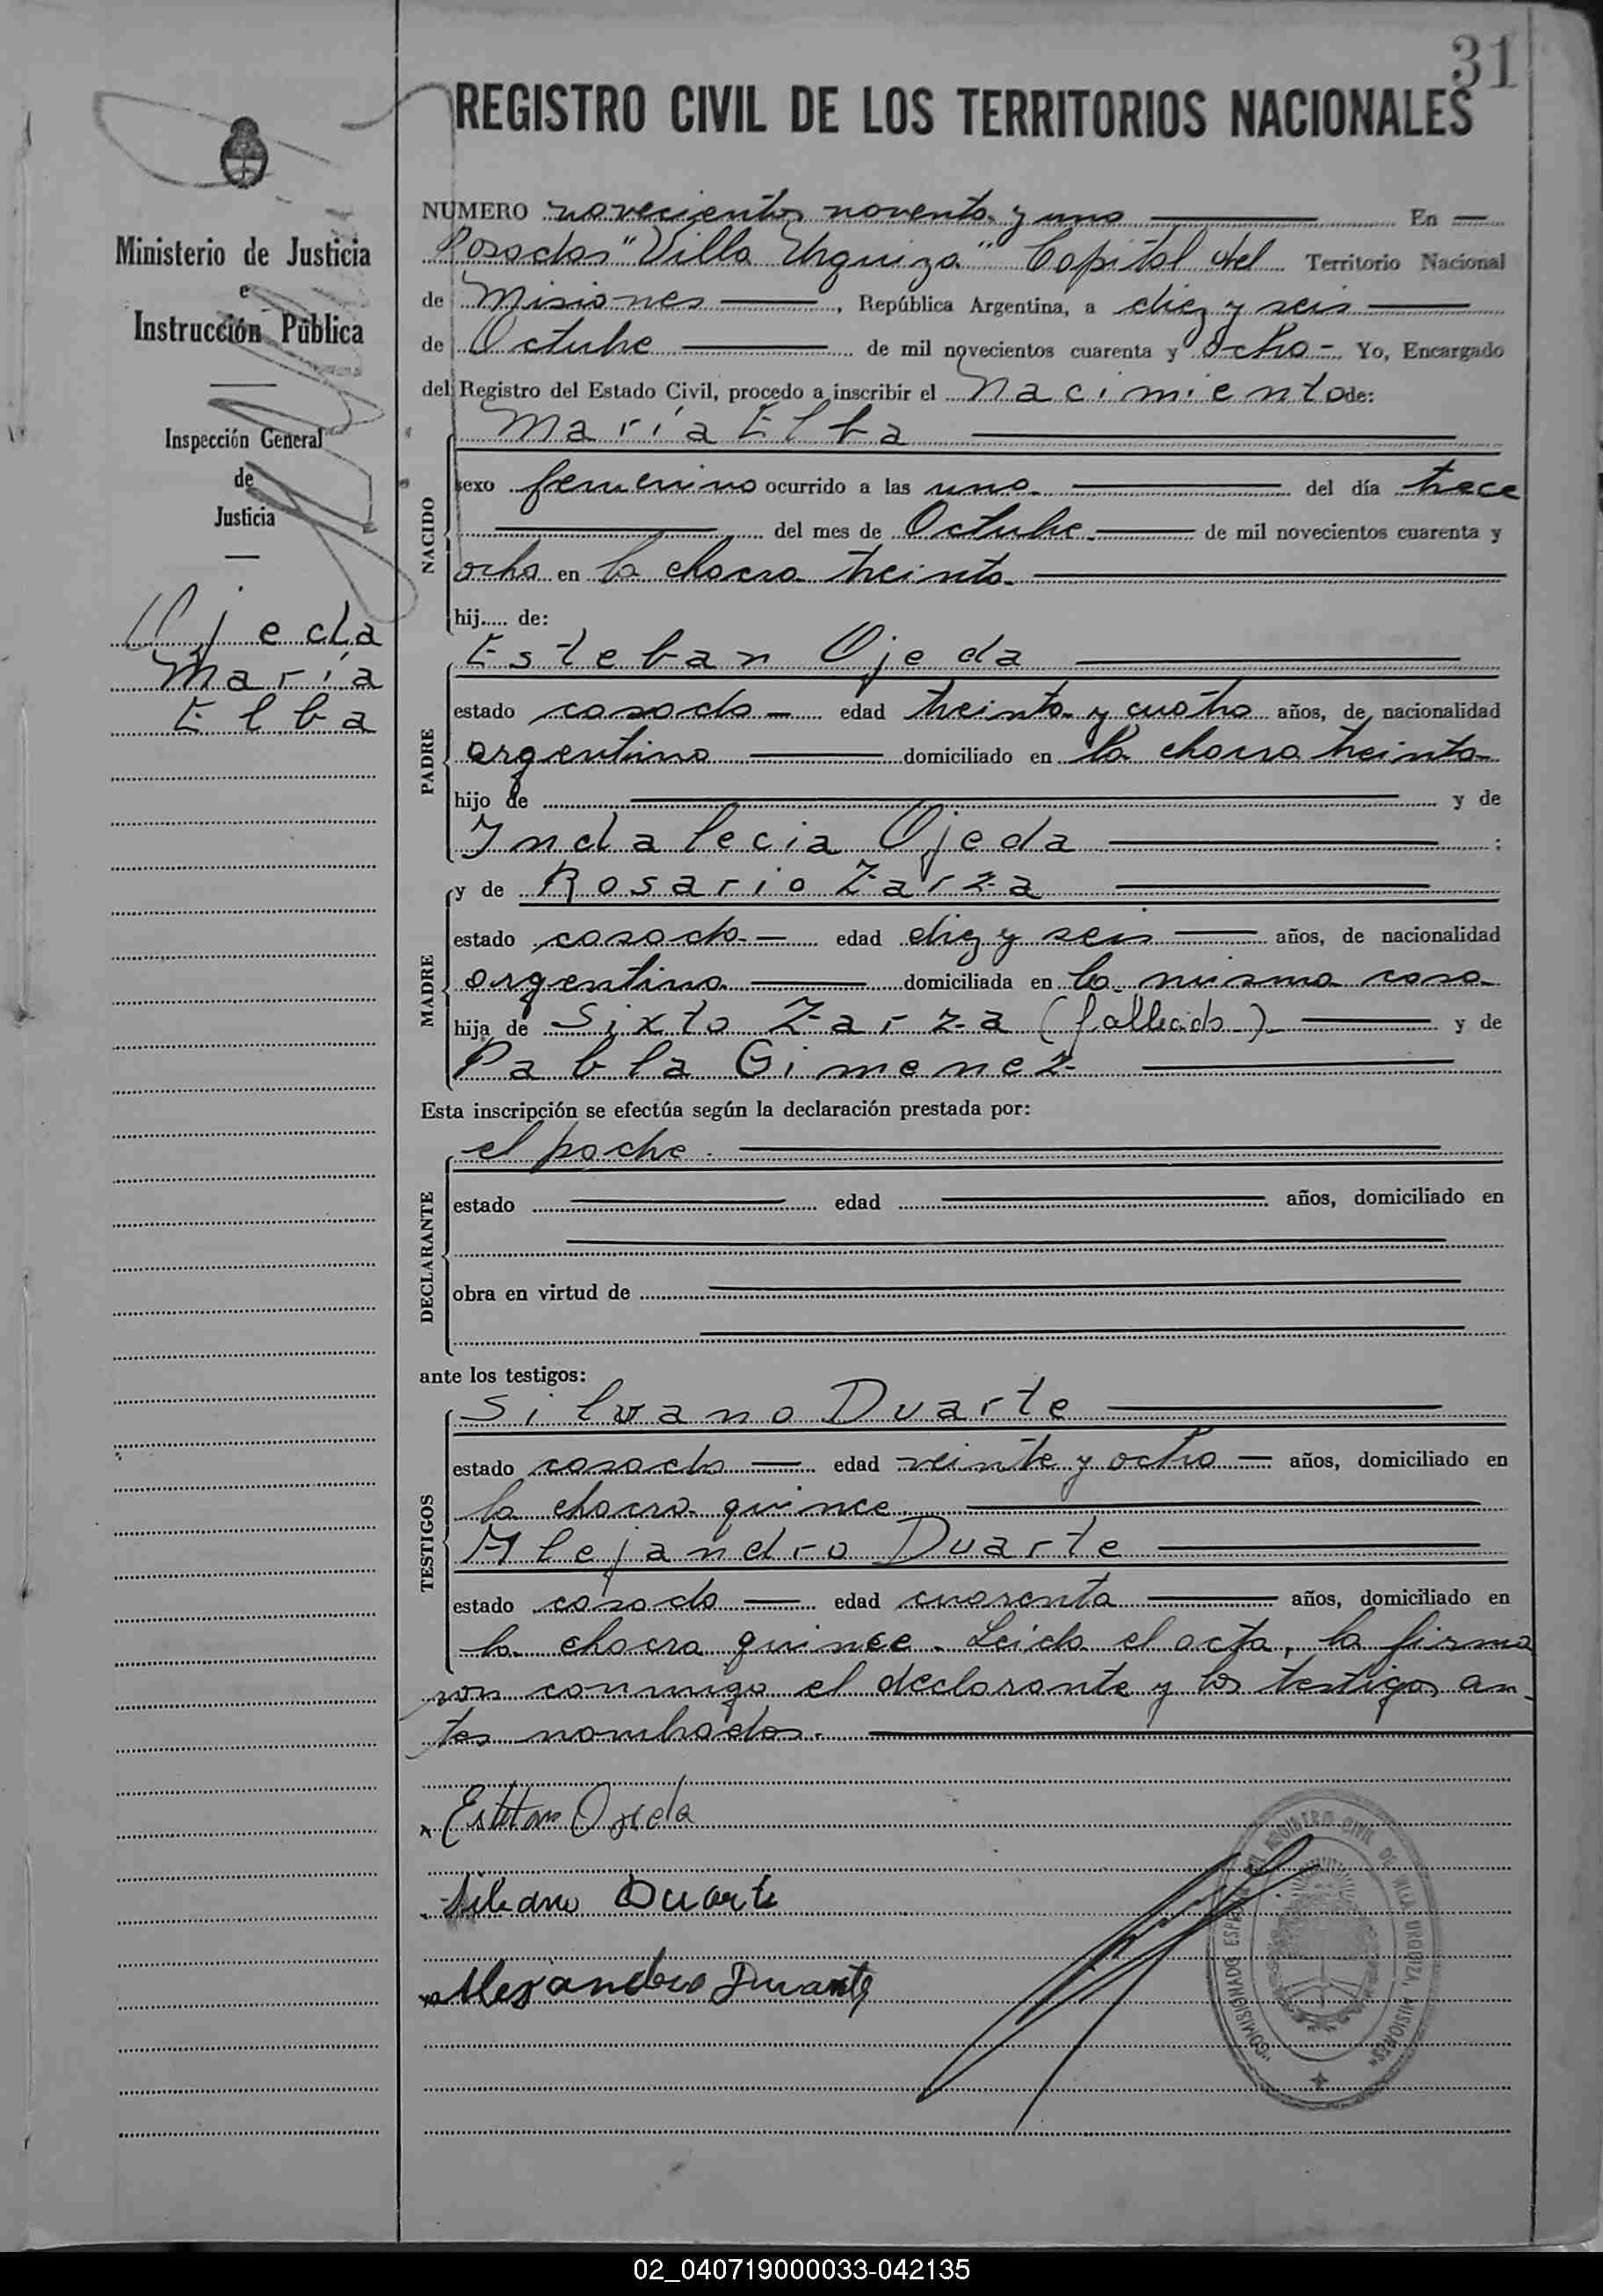 31
REGISTRO CIVIL DE LOS TERRITORIOS NACIONALES
Ministerio de Justicia
e
Instrucción Pública
Inspección General
de
Justicia
Ojeda
María
Elba
NUMERO novecientos noventa y uno En
Posadas "Villa Urquiza" Capital del Territorio Nacional
de Misiones, República Argentina, a diez y seis
de Octubre de mil novecientos cuarenta y ocho - Yo, Encargado
del Registro del Estado Civil, procedo a inscribir el Nacimiento de:
María Elba
NACIDO
sexo femenino ocurrido a las una del día trece
del mes de Octubre de mil novecientos cuarenta y
ocho en la chacra treinta
hij..... de:
Esteban Ojeda
PADRE
estado casado edad treinta y cuatro años, de nacionalidad
argentino domiciliado en la chacra treinta
hijo de y de
Indalecia Ojeda ;
MADRE
y de Rosario Zarza
estado casada edad diez y seis años, de nacionalidad
argentina domiciliada en la misma casa
hija de Sixto Zarza (fallecido) y de
Pabla Gimenez
Esta inscripción se efectúa según la declaración prestada por:
el padre.
DECLARANTE
estado edad años, domiciliado en
obra en virtud de
ante los testigos:
Silvano Duarte
TESTIGOS
estado casado edad veinte y ocho años, domiciliado en
la chacra quince
Alejandro Duarte
estado casado edad cuarenta años, domiciliado en
la chacra quince. Leída el acta, la firma
ron conmigo el declarante y los testigos an-
tes nombrados.
Esteban Ojeda
Silvano Duarte
Alejandro Duarte
COMISIONADO ESPECIAL DEL REGISTRO CIVIL DE VILLA URQUIZA, MISIONES
02_040719000033-042135